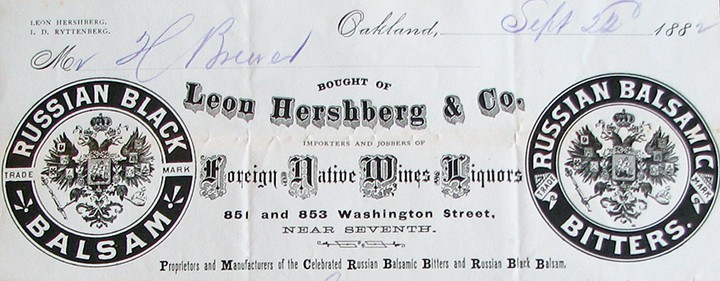 LEON HERSHBERG.
I. D. RYTTENBERG.
Oakland, Sept 188
Mr H Brewer
BOUGHT OF
Leon Hershberg & Co.
IMPORTERS AND JOBBERS OF
Foreign and Native Wines and Liquors
851 and 853 Washington Street,
NEAR SEVENTH.
Proprietors and Manufacturers of the Celebrated Russian Balsamic Bitters and Russian Black Balsam.
RUSSIAN BLACK
TRADE MARK
BALSAM
RUSSIAN BALSAMIC
TRADE MARK
BITTERS.